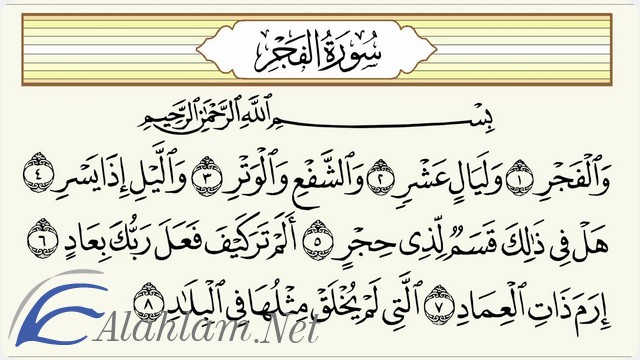 سُورَةُ الفَجْرِ
بِسْمِ اللَّهِ الرَّحْمَٰنِ الرَّحِيمِ
وَالْفَجْرِ ١ وَلَيَالٍ عَشْرٍ ٢ وَالشَّفْعِ وَالْوَتْرِ ٣ وَالَّيْلِ إِذَا يَسْرِ ٤
هَلْ فِي ذَٰلِكَ قَسَمٌ لِّذِي حِجْرٍ ٥ أَلَمْ تَرَ كَيْفَ فَعَلَ رَبُّكَ بِعَادٍ ٦
إِرَمَ ذَاتِ الْعِمَادِ ٧ الَّتِي لَمْ يُخْلَقْ مِثْلُهَا فِي الْبِلَادِ ٨
Alahlam.Net